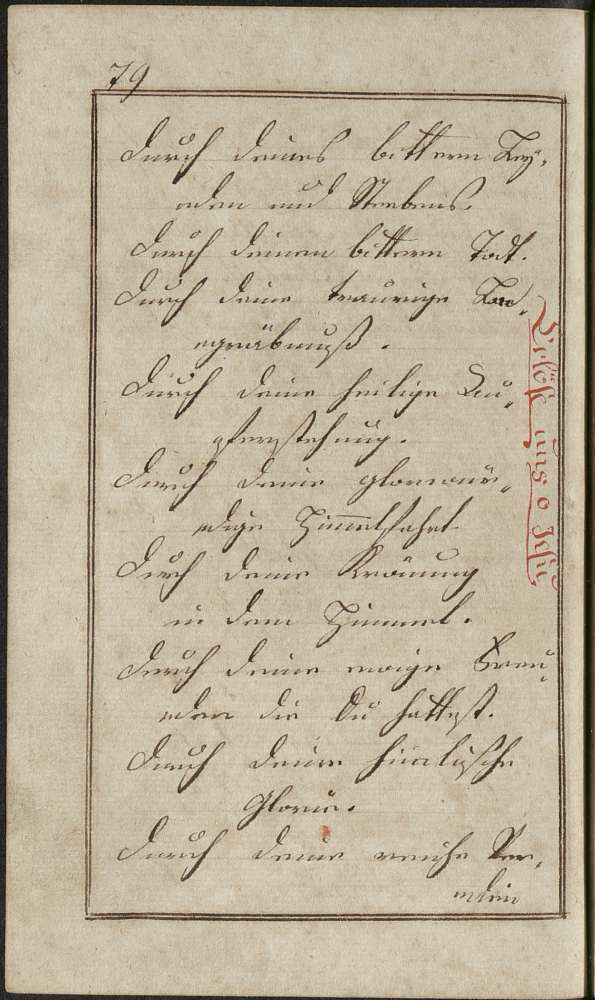 79
Durch deines bittern Ley,
den und Sterbens.
Durch deinen bittern Todt.
Durch deine traurige Be,
gräbnuß.
Durch deine heilige Au,
ferstehung.
Durch deine glorwür,
dige Him̅elfahrt
Durch deine Krönung
in dem Himmel.
Durch deine ewige Freu,
den die Du hattest.
Durch deine himlische
Glorie.
Durch deine reiche
Erlöse uns o Jesu